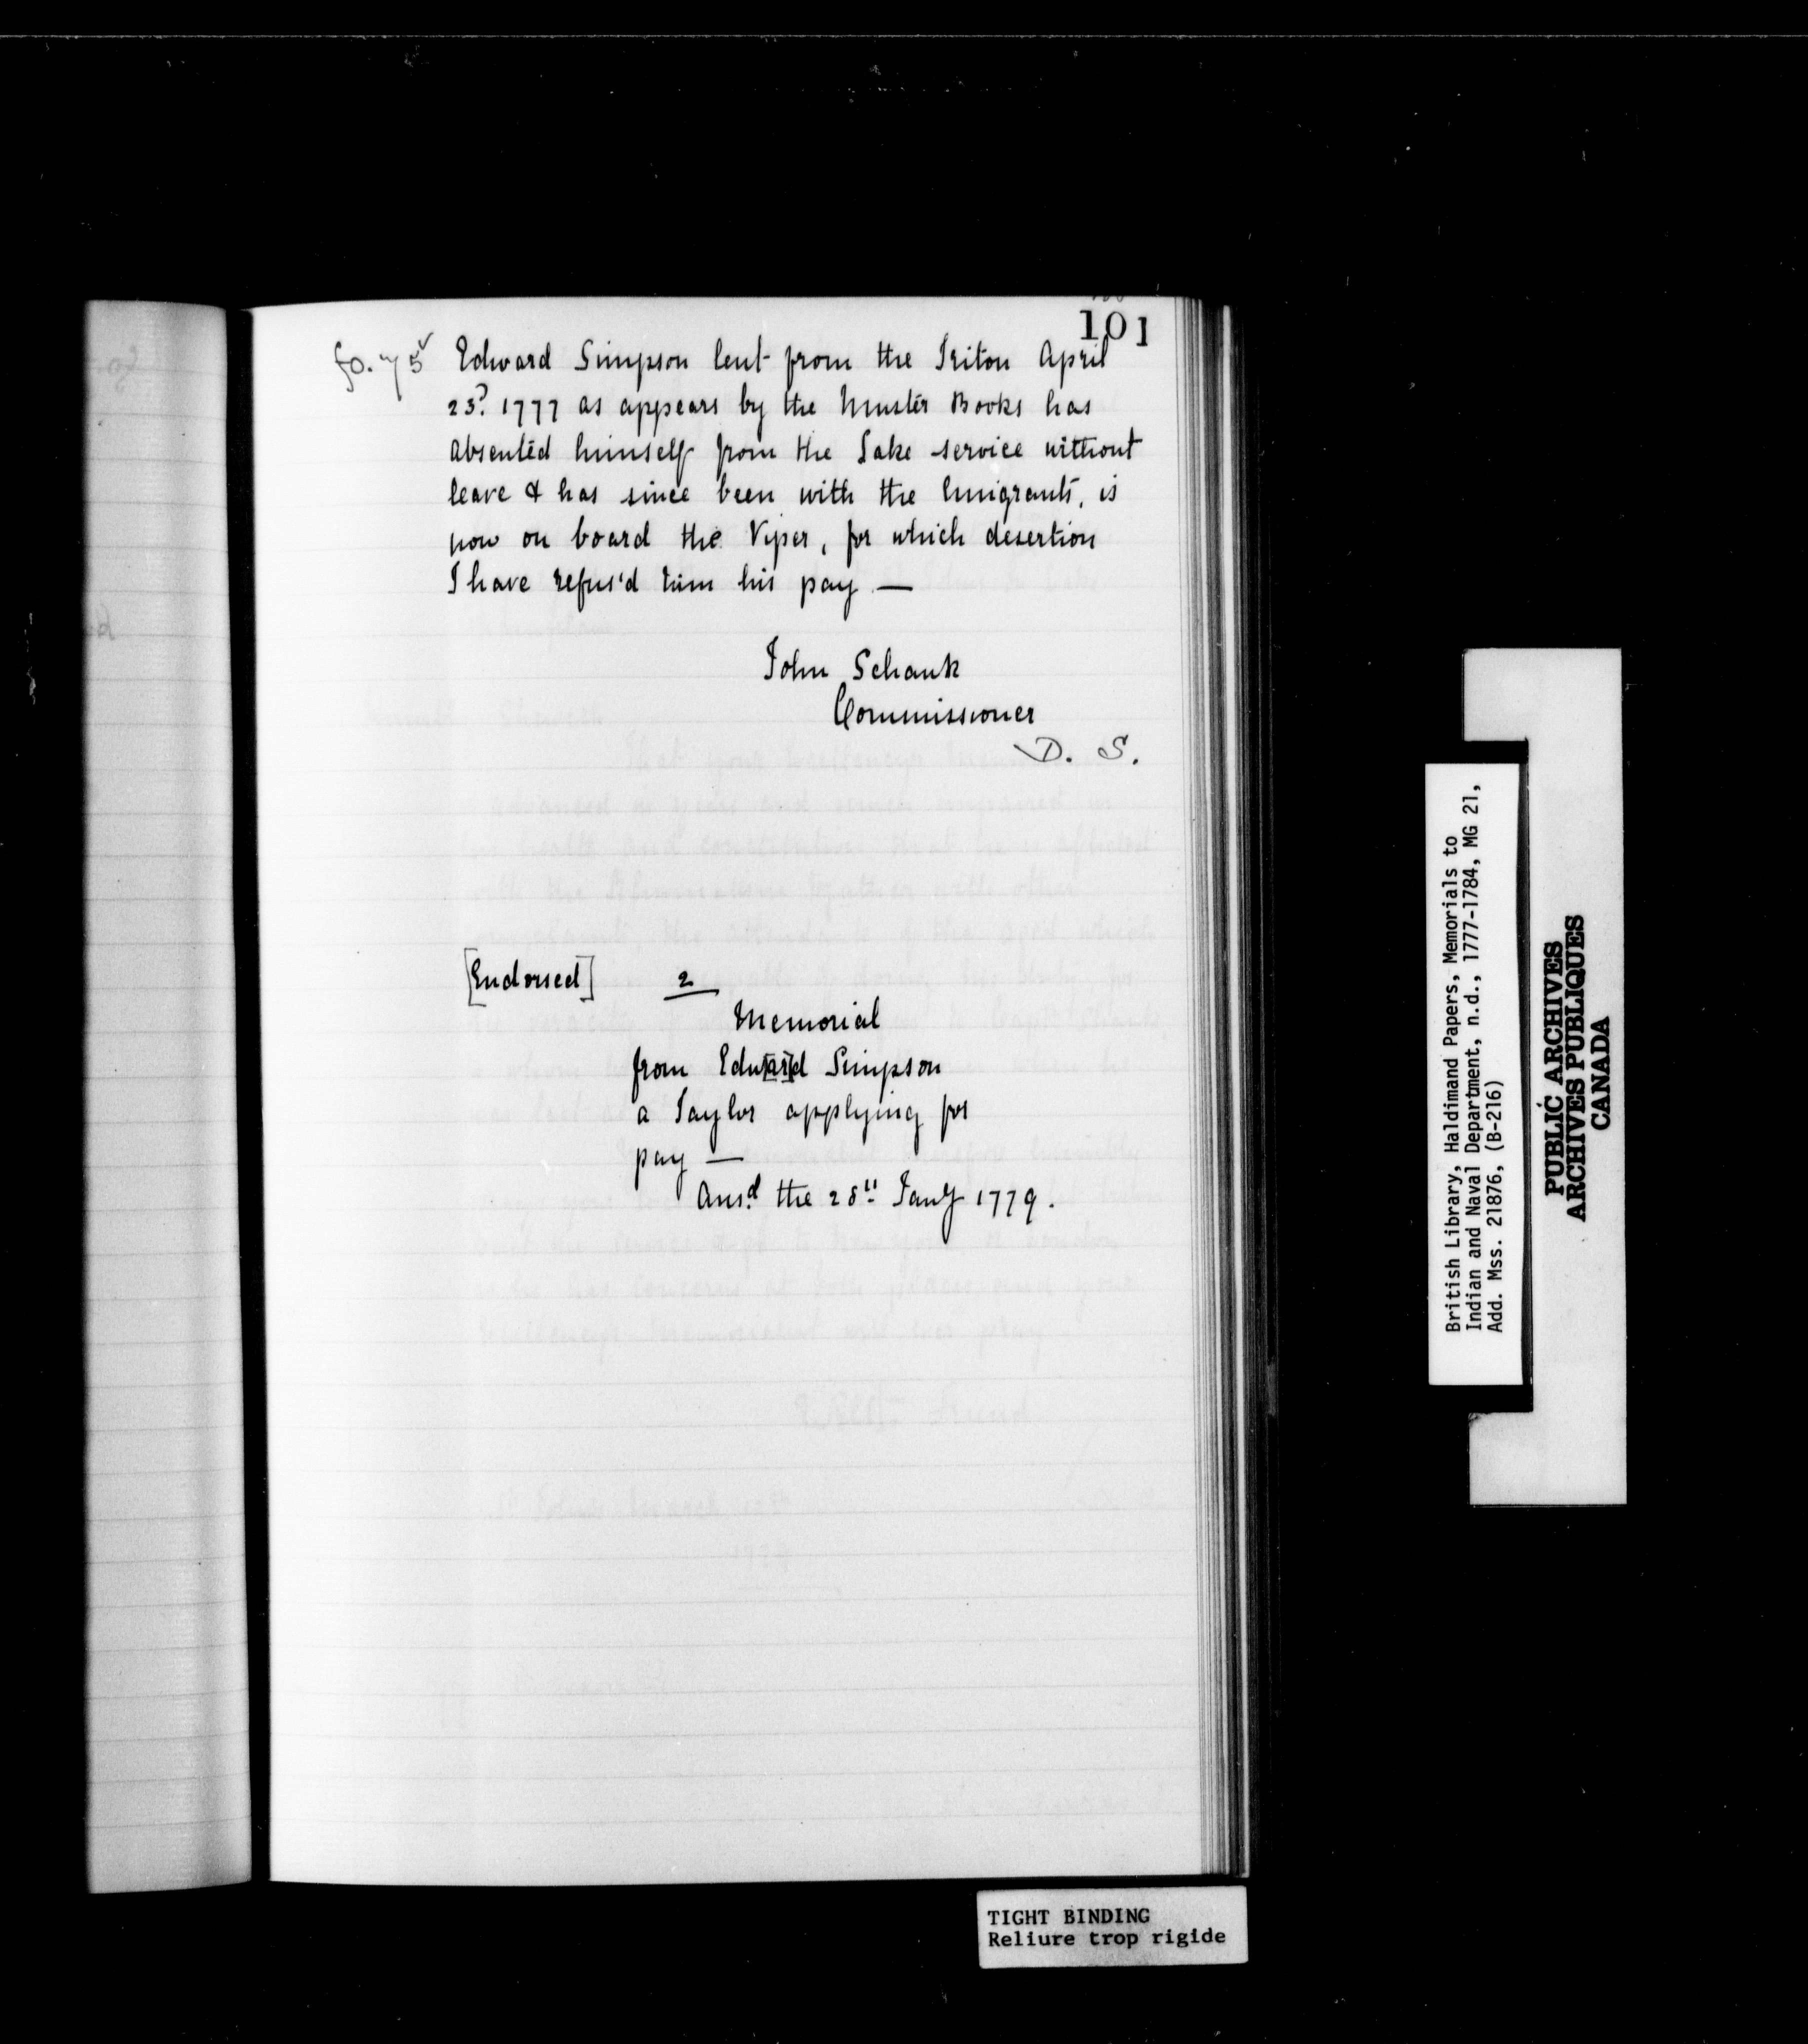 101
fo. 75v Edward Simpson lent from the Triton April
23d. 1777 as appears by the Muster Books has
absented himself from the Lake service without
leave & has since been with the Emigrants, is
now on board the Viper, for which desertion
I have refus'd him his pay —
John Schank
Commissioner
D. S.
[Endorsed] 2
Memorial
from Edw[ar]d Simpson
a Taylor applying for
pay —
Ansd. the 28th Jany 1779.
British Library, Haldimand Papers, Memorials to
Indian and Naval Department, n.d., 1777-1784, MG 21,
Add. Mss. 21876, (B-216)
PUBLIC ARCHIVES
ARCHIVES PUBLIQUES
CANADA
TIGHT BINDING
Reliure trop rigide